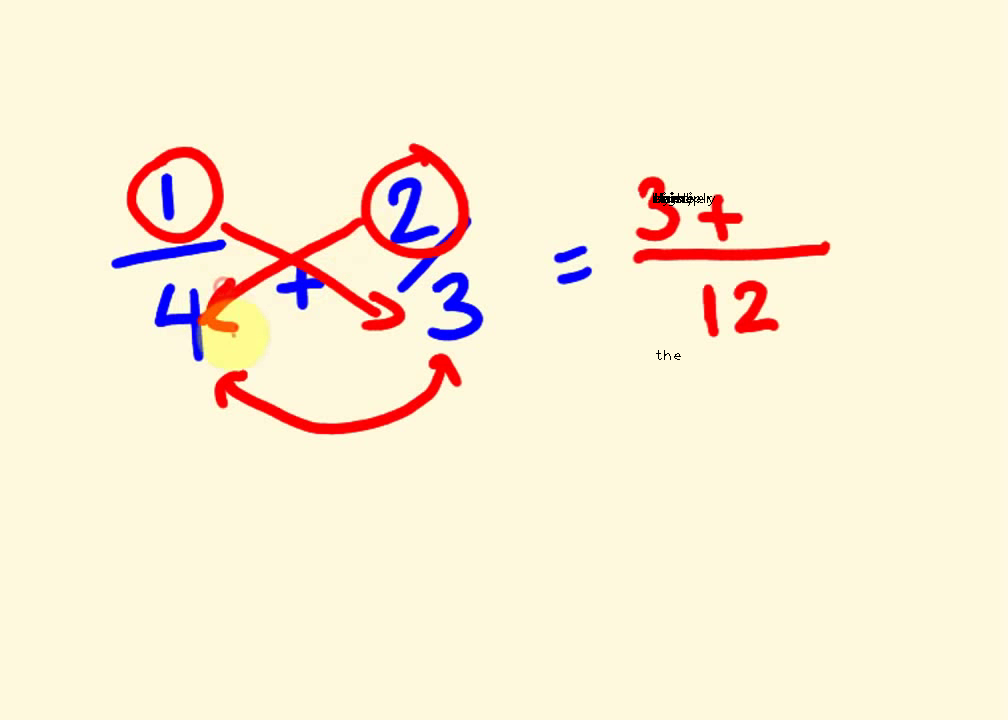 1/4 + 2/3 = 3+/12
the